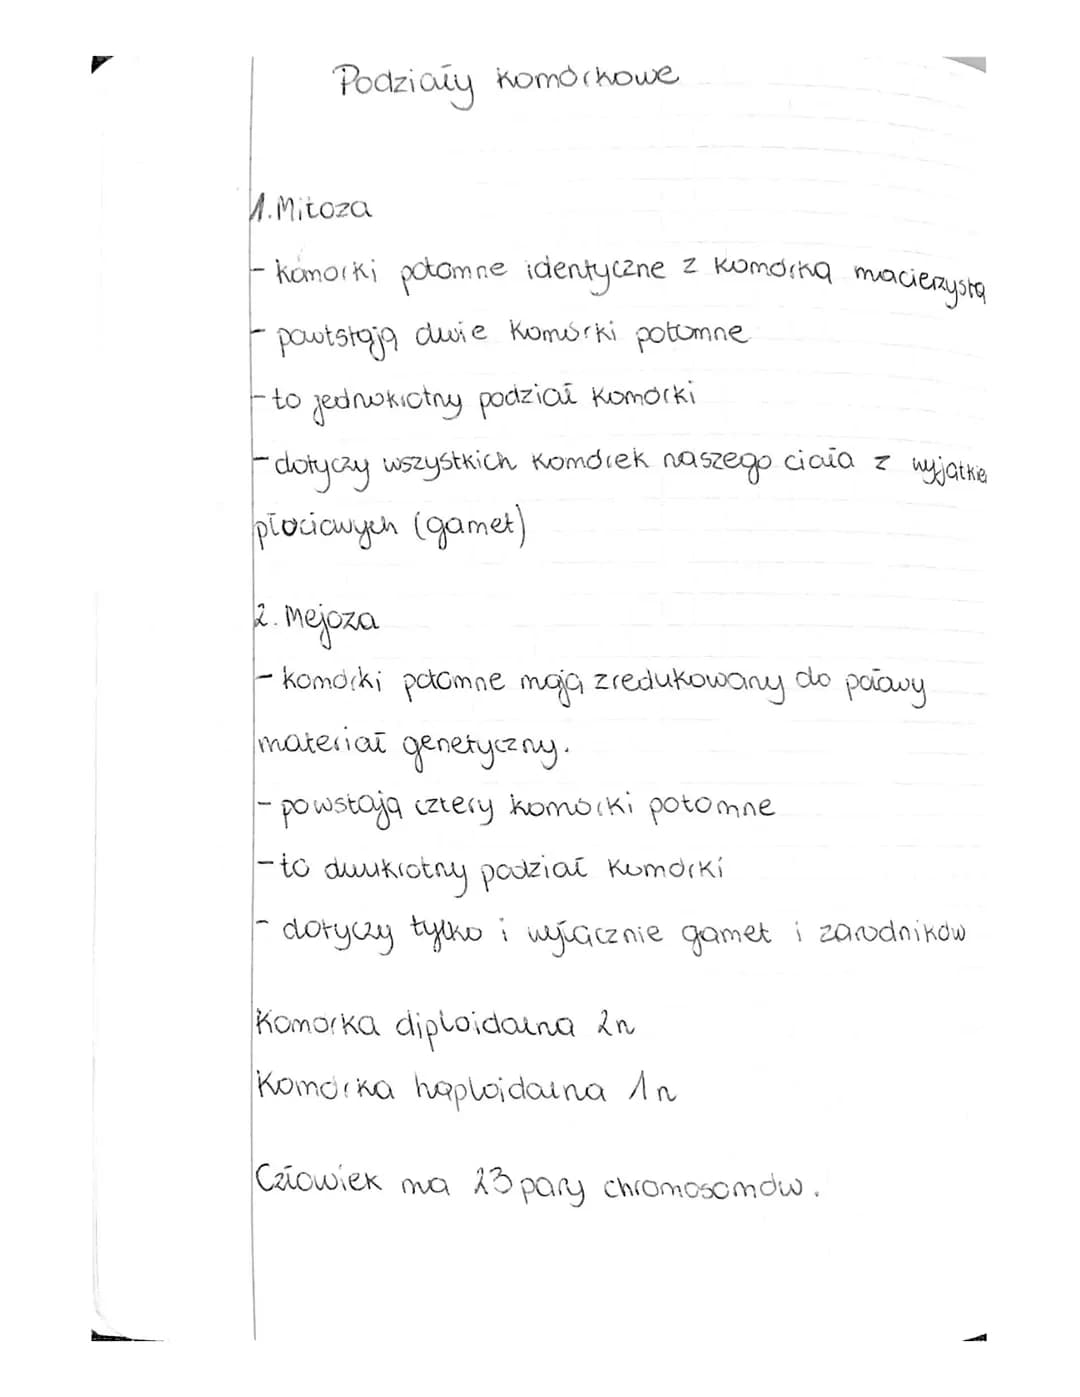 Podziały komórkowe
1. Mitoza
- komórki potomne identyczne z komórką macierzystą
- powtstają dwie komórki potomne
- to jednokrotny podział komórki
- dotyczy wszystkich komórek naszego ciała z wyjątkie
płociowych (gamet)
2. Mejoza
- komórki potomne mają zredukowany do połowy
materiał genetyczny.
- powstają cztery komórki potomne
- to dwukrotny podział komórki
- dotyczy tylko i wyłącznie gamet i zarodników
Komórka diploidalna 2n
Komórka haploidalna 1n
Człowiek ma 23 pary chromosomów.